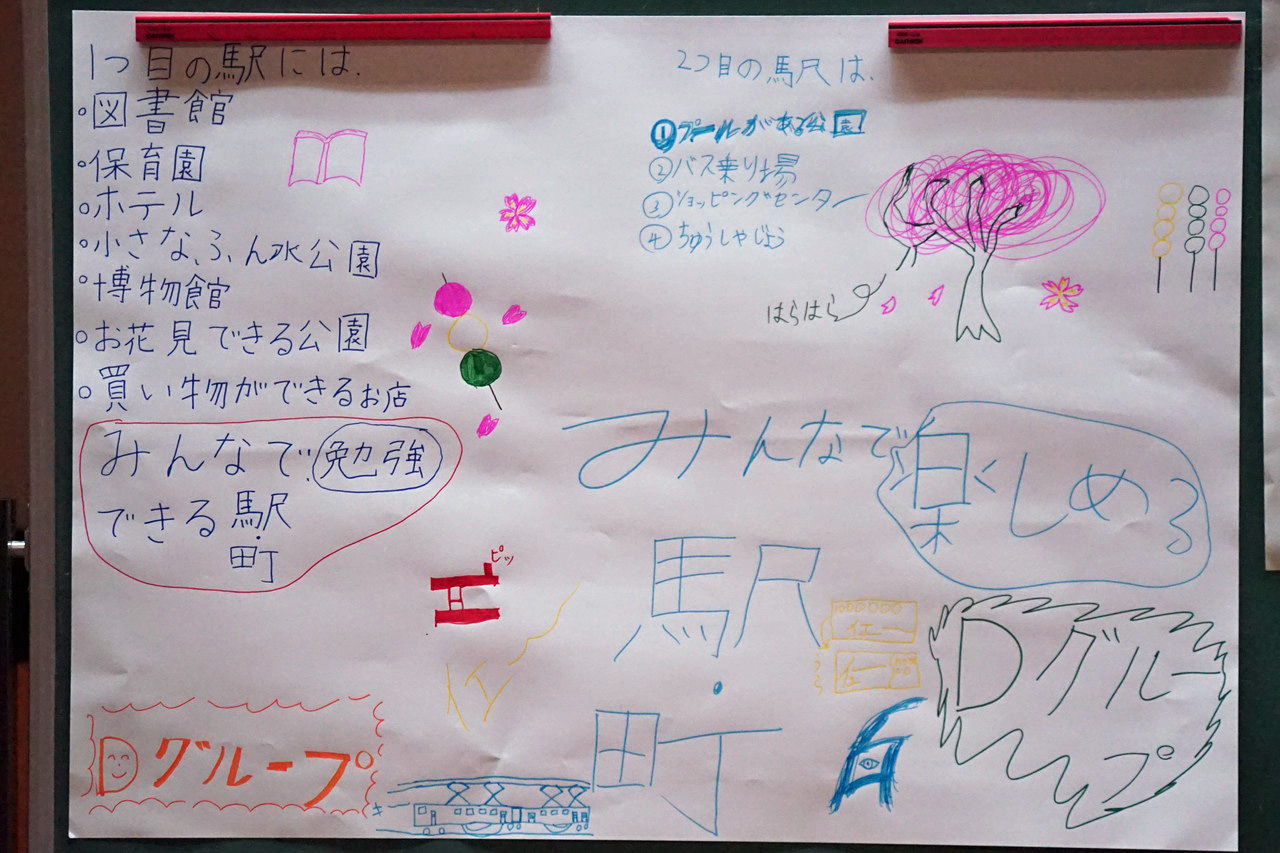 1つ目の駅には、
・図書館
・保育園
・ホテル
・小さな、ふん水公園
・博物館
・お花見できる公園
・買い物ができるお店
みんなで勉強
できる駅
・
町
ピッ
イエー
Dグループ
2つ目の駅は、
①プールがある公園
②バス乗り場
③ショッピングやセンター
④ちゅうしゃじょう
はらはら
みんなで楽しめる
駅
・
町
イエー
イエー
Dグループ